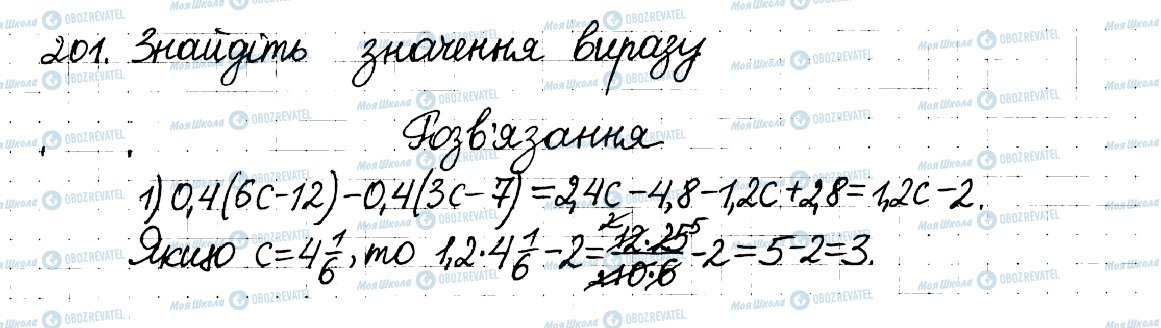 201. Знайдіть значення виразу
Розв'язання
1) 0,4(6c-12)-0,4(3c-7)=2,4c-4,8-1,2c+2,8=1,2c-2.
Якщо c=4 1/6, то 1,2·4 1/6-2=12·25/10·6-2=5-2=3.